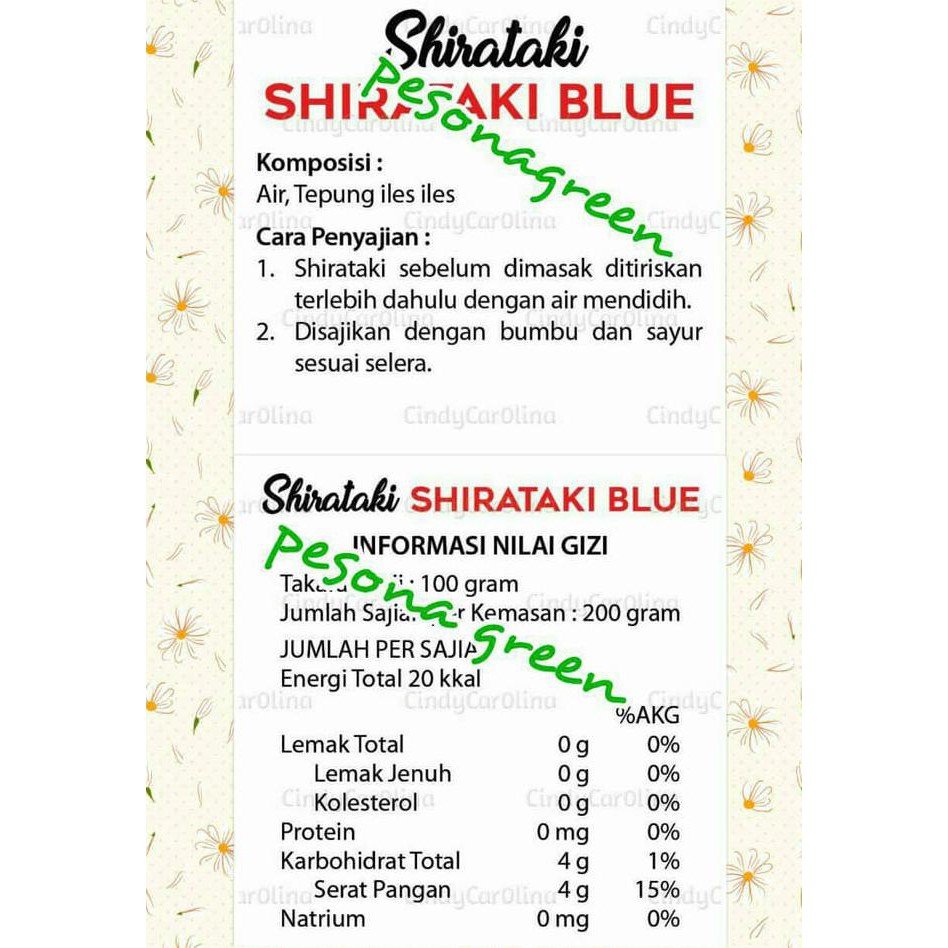 Shirataki
SHIRATAKI BLUE
Pesonagreen
Komposisi :
Air, Tepung iles iles
Cara Penyajian :
1. Shirataki sebelum dimasak ditiriskan
terlebih dahulu dengan air mendidih.
2. Disajikan dengan bumbu dan sayur
sesuai selera.
CindyCar0lina
Shirataki SHIRATAKI BLUE
INFORMASI NILAI GIZI
Pesona green
: 100 gram
Jumlah Kemasan : 200 gram
JUMLAH PER
Energi Total 20 kkal
%AKG
Lemak Total 0 g 0%
Lemak Jenuh 0 g 0%
Kolesterol 0 g 0%
Protein 0 mg 0%
Karbohidrat Total 4 g 1%
Serat Pangan 4 g 15%
Natrium 0 mg 0%